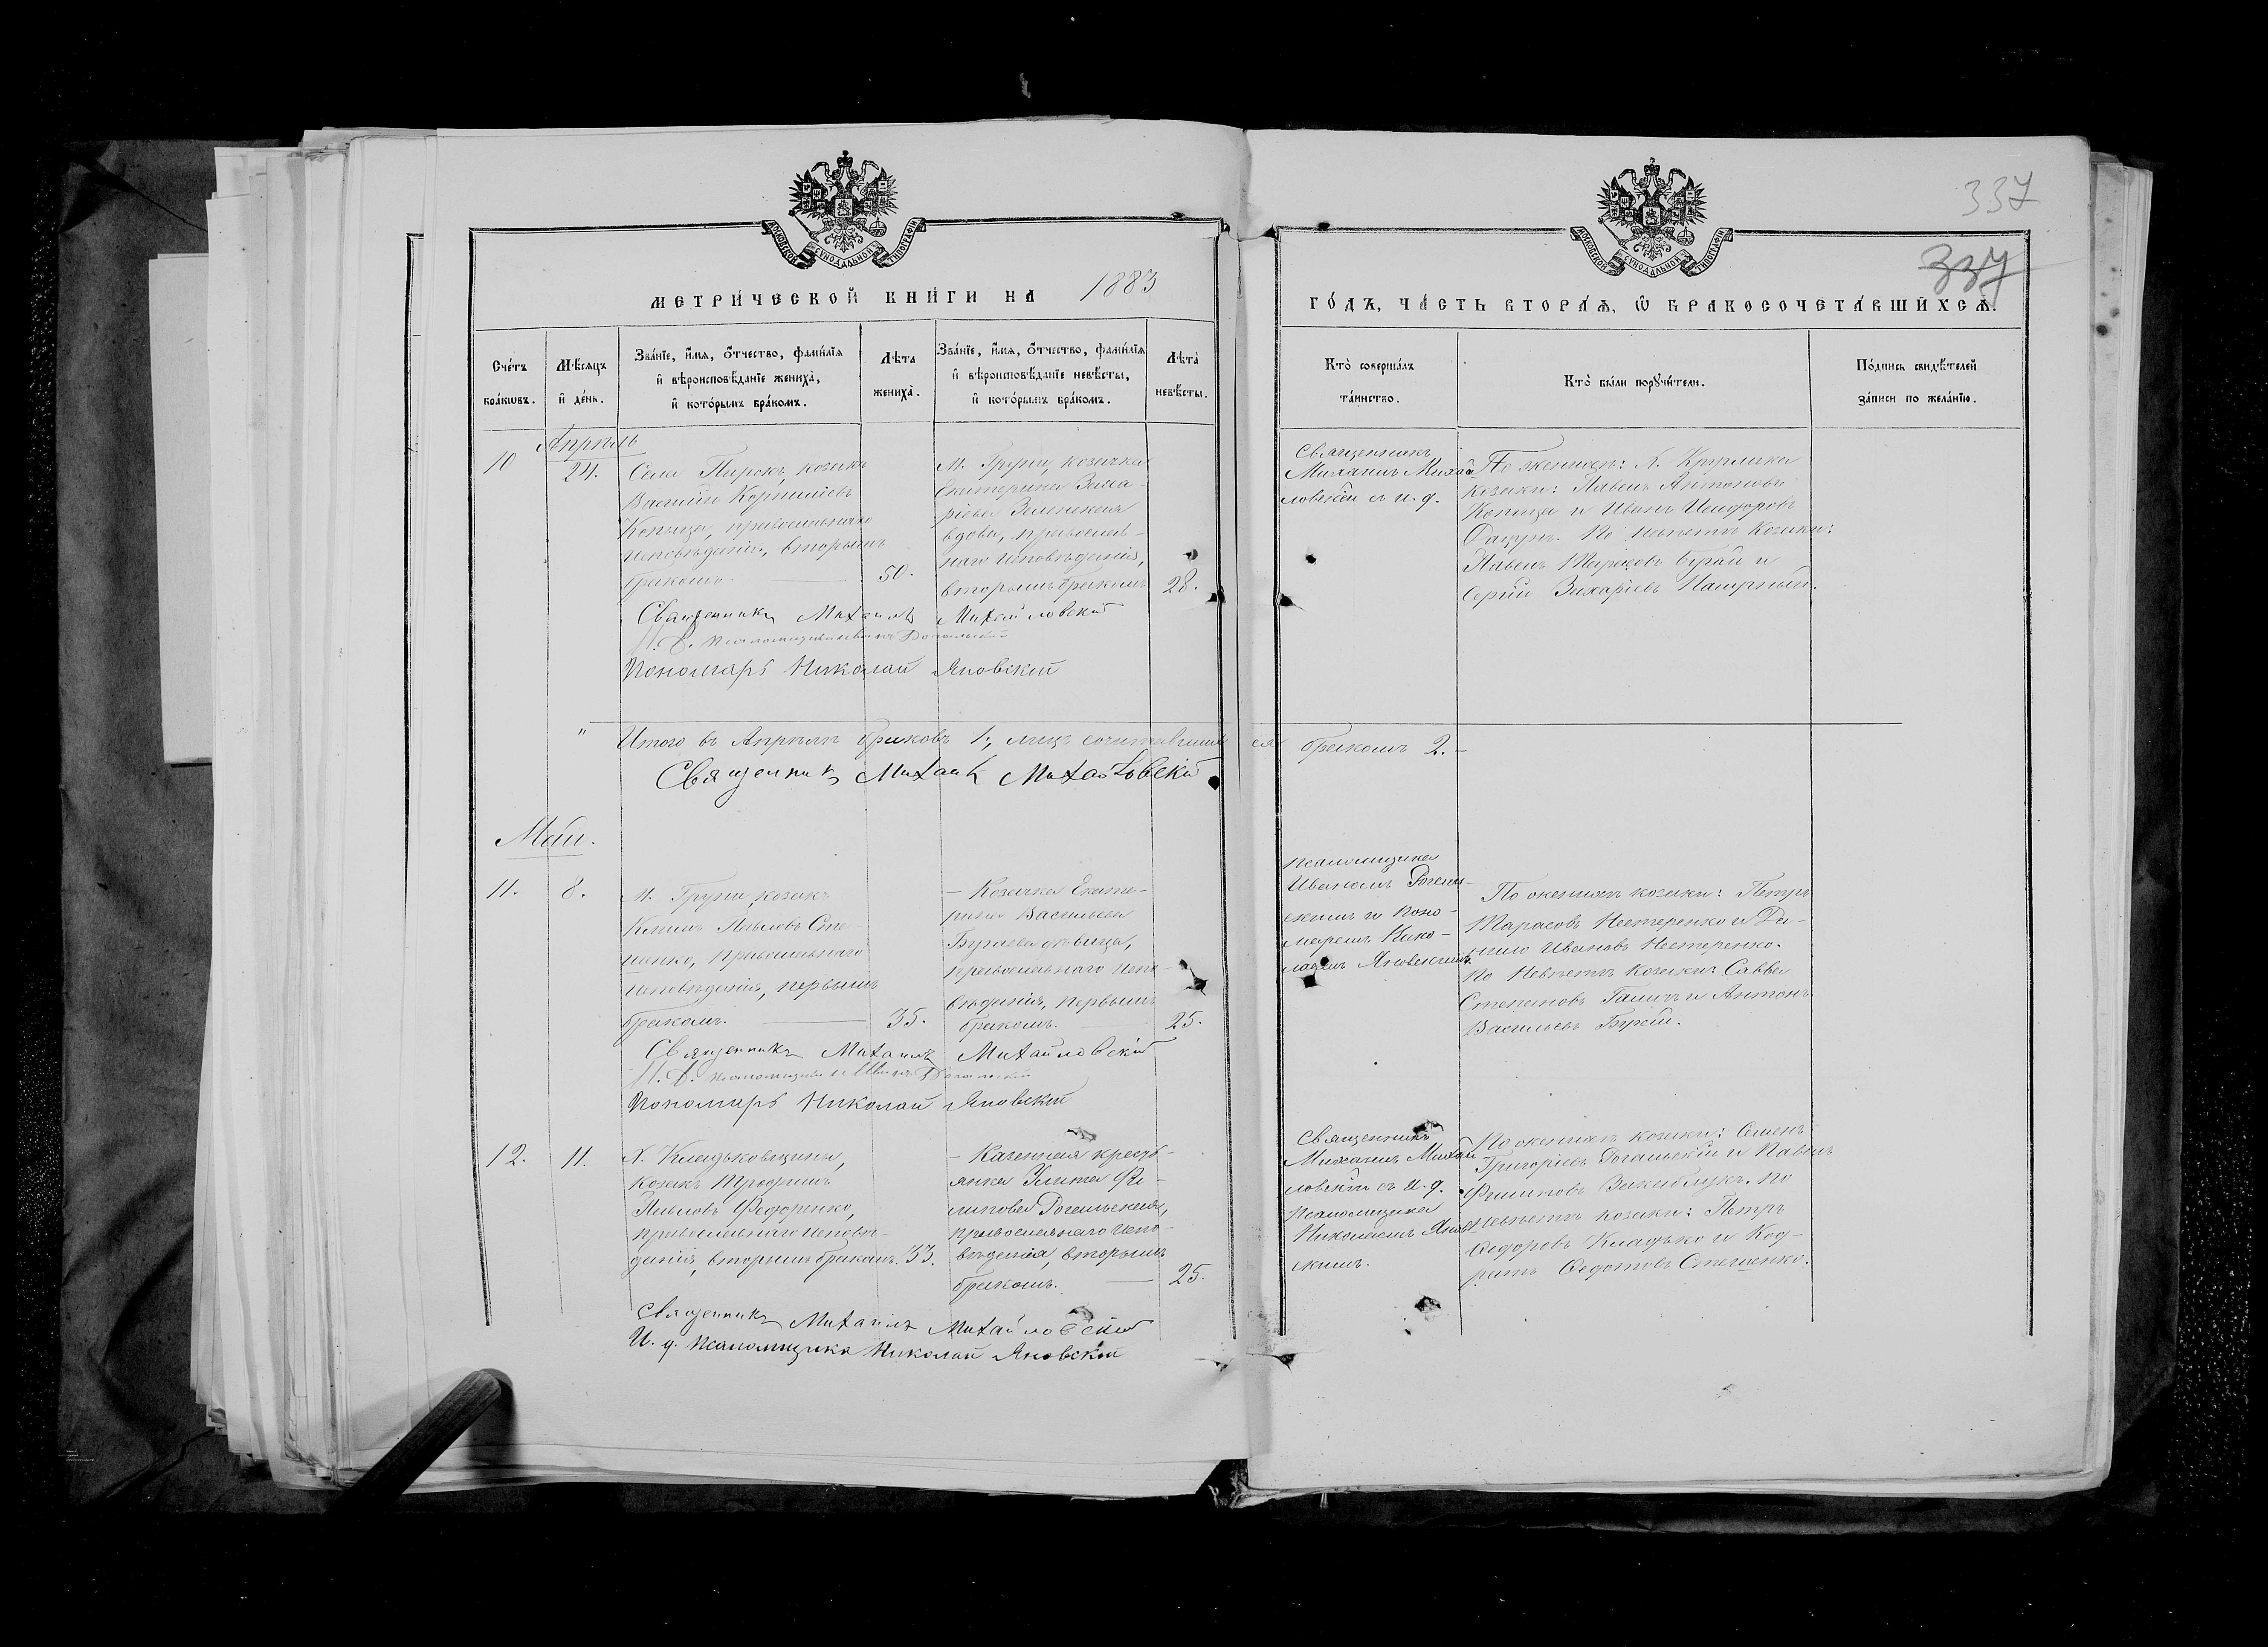 337
337
МОСКОВСКОЙ СѴНОДАЛЬНОЙ ТИПОГРАФІИ
МОСКОВСКОЙ СѴНОДАЛЬНОЙ ТИПОГРАФІИ
МЕТРИ́ЧЕСКОЙ КНИ́ГИ НА 1883
ГО́ДЪ, ЧА́СТЬ ВТОРА́Я, Ѡ БРАКОСОЧЕТА́ВШИХСЯ.
Сче́тъ
бра́кѡвъ.
Мѣ́сяцъ
и де́нь.
Зва́нїе, и́мя, о́тчество, фами́лїя
и вѣроисповѣ́данїе жениха̀,
и кото́рымъ бра́комъ.
Лѣ́та
жениха̀.
Зва́нїе, и́мя, о́тчество, фами́лїя
и вѣроисповѣ́данїе невѣ́сты,
и кото́рымъ бра́комъ.
Лѣ́та
невѣ́сты.
Кто̀ соверша́лъ
та́инство.
Кто̀ бы́ли порꙋчи́тели.
По́дпись свидѣ́телей
за́писи по жела́нїю.
Апрѣль
10
24.
Села Пирокъ, козакъ
Василій Корниліевъ
Копыця, православнаго
исповѣданія, вторымъ
бракомъ.
50.
М. Груни, козачка
Екатерина Заха-
ріева
вдова, православ-
наго исповѣданія,
вторымъ бракомъ
28.
Священникъ
Михаилъ Михай-
ловскій съ и. д.
По женихѣ: Х. Круглика
козаки: Павелъ Антоновъ
Копыця и Иванъ Исидоровъ
Дацунъ. По невѣстѣ козаки:
Павелъ Тарасовъ Бугай и
Сергій Захаріевъ
Священникъ Михаилъ Михайловскій
И. д. псаломщика Иванъ
Пономарь Николай Яновскій
" Итого въ Апрѣлѣ браковъ 1., лицъ сочитавшихся бракомъ 2.
Священникъ Михаилъ Михайловскій
Май.
11.
8.
М. Груни, козакъ
Климъ Павловъ Сте-
ценко, православнаго
исповѣданія, первымъ
бракомъ.
35.
Козачка Екате-
рина Васильева
Бугаева дѣвица,
православнаго испо-
вѣданія, первымъ
бракомъ.
25.
псаломщика
Иваномъ Рогаль-
скимъ и поно-
маремъ Нико-
лаемъ Яновскимъ
По женихѣ козаки: Петръ
Тарасовъ Нестеренко и Да-
нило Ивановъ Нестеренко.
По невѣстѣ козаки Савва
Степановъ Галичъ и Антонъ
Васильевъ Бугай.
Священникъ Михаилъ Михайловскій
И. д. псаломщика Иванъ
Пономарь Николай Яновскій
12.
11.
Х. Кладьковщины,
козакъ Трофимъ
Павловъ Федоренко,
православнаго исповѣ-
данія, вторымъ бракомъ.
33.
Казенная кресть-
янка Улита Фи-
липова Рогальская,
православнаго испо-
вѣданія, вторымъ
бракомъ.
25.
Священникъ
Михаилъ Михай-
ловскій съ и. д.
псаломщика
Николаемъ Янов-
скимъ.
По женихѣ козаки: Семенъ
Григоріевъ Рогальскій и Павелъ
Филиповъ Закаблукъ. По
невѣстѣ козаки: Петръ
Федоровъ Кладько и Код-
ратъ Федотовъ Стешенко.
Священникъ Михаилъ Михайловскій
И. д. псаломщика Николай Яновскій